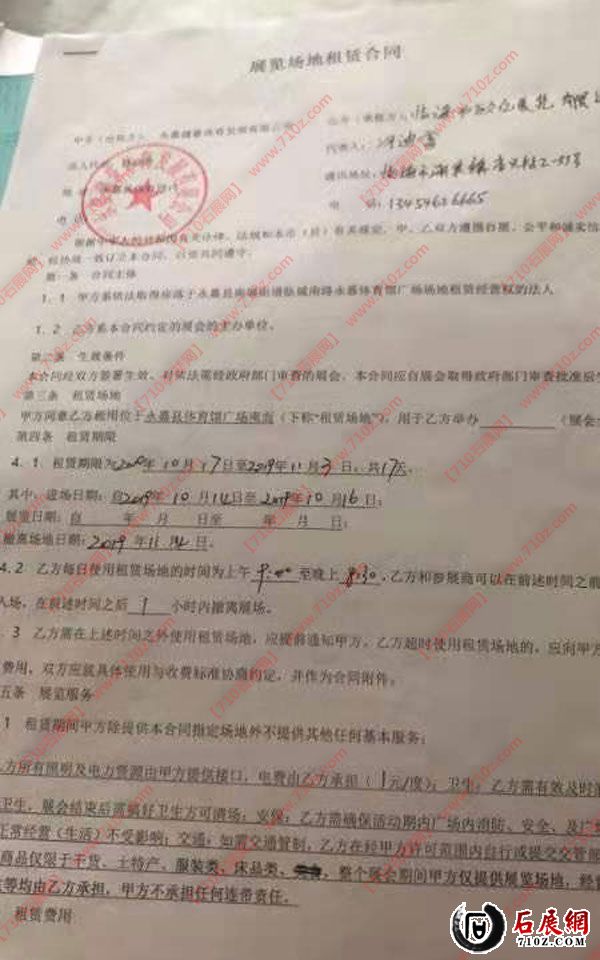 展览场地租赁合同
甲方（出租方）：
乙方（承租方）：
法人代表：
代表人：
地 址：
通讯地址：
电 话：
电 话：13454626665
第一条 合同主体
1.1 甲方系依法取得座落于永嘉县南城街道临城南路永嘉体育馆广场场地租赁经营权的法人
1.2 乙方系本合同约定的展会的主办单位。
第二条 生效条件
本合同经双方签署生效。对依法需经政府部门审查的展会，本合同应自展会取得政府部门审查批准后生
第三条 租赁场地
甲方同意乙方租用位于永嘉县体育馆广场南面（下称“租赁场地”），用于乙方举办 （展会
第四条 租赁期限
4.1 租赁期限为 年10月17日至2019年11月3日，共17天。
其中：进场日期：自2019年10月14日至2019年10月16日；
展览日期：自 年 月 日至 年 月 日；
撤离场地日期：2019年11月4日。
4.2 乙方每日使用租赁场地的时间为上午9:00至晚上8:30，乙方和参展商可以在前述时间之前
入场，在前述时间之后1小时内撤离展场。
3 乙方需在上述时间之外使用租赁场地，应提前通知甲方。乙方超时使用租赁场地的，应向甲方
费用，双方应就具体使用与收费标准协商约定，并作为合同附件。
五条 展览服务
1 租赁期间甲方除提供本合同指定场地外不提供其他任何基本服务：
方所有照明及电力资源由甲方提供接口，电费由乙方承担（1元/度）；卫生：乙方需有效及时清
卫生，展会结束后需搞好卫生方可退场；安保：乙方需确保活动期内广场内消防、安全、及广场
正常经营（生活）不受影响；交通：如需交通管制，乙方在经甲方许可范围内自行或提交交管部
商品仅限于干货、土特产、服装类、床品类、 整个展会期间甲方仅提供展览场地，经营
等均由乙方承担，甲方不承担任何连带责任。
租赁费用
石展網
710Z.COM
【710石展网】www.710z.com